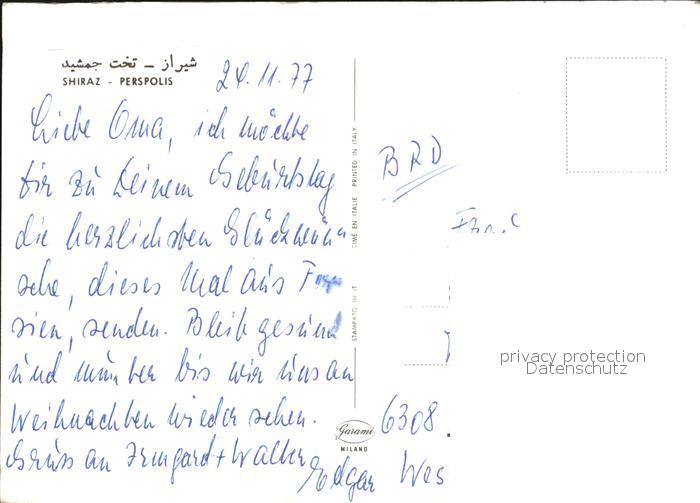 شیراز – تخت جمشید
SHIRAZ - PERSPOLIS
24.11.77
Liebe Oma, ich möchte
Dir zu Deinem Geburtstag
die herzlichsten Glückwün
sche, dieses Mal aus
sien, senden. Bleib gesund
und munter bis wir uns an
Weihnachten wieder sehen.
Gruss an Irmgard + Walter
Edgar
STAMPATO IN IT TIMÉ EN ITALIE PRINTED IN ITALY
Garami
MILANO
BRD
Frau
6308
privacy protection
Datenschutz